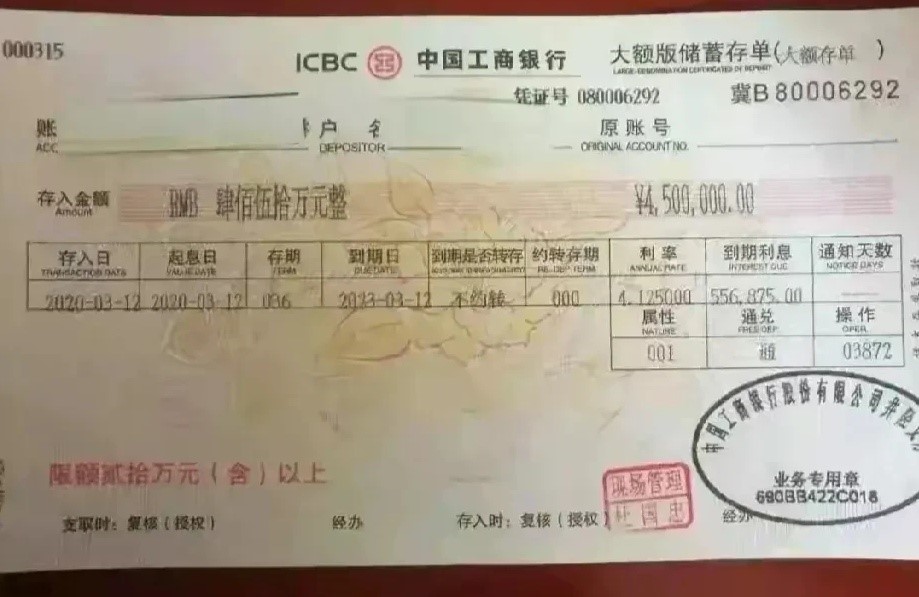 000315
ICBC 中国工商银行 大额版储蓄存单(大额存单 )
LARGE-DENOMINATION CERTIFICATES OF DEPOSIT
凭证号 080006292 冀B 80006292
账 户 名 原账号
ACC DEPOSITOR ORIGINAL ACCOUNT NO.
存入金额 RMB 肆佰伍拾万元整 ¥4,500,000.00
Amount
存入日 起息日 存期 到期日 到期是否转存 约转存期 利率 到期利息 通知天数
TRANSACTION DATE VALUE DATE TERM DUE DATE RE-DEP TERM ANNUAL RATE INTEREST DUE NOTICE DAYS
2020-03-12 2020-03-12 036 2023-03-12 不约转 000 4.125000 556,875.00
属性 通兑 操作
NATURE OPER.
001 通 03872
中国工商银行股份有限公司井陉
业务专用章
限额贰拾万元(含)以上
现场管理
杜国忠
支取时:复核(授权) 经办 存入时:复核(授权) 经办